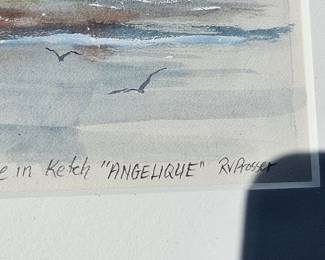 e in Ketch "ANGELIQUE" RVProsser